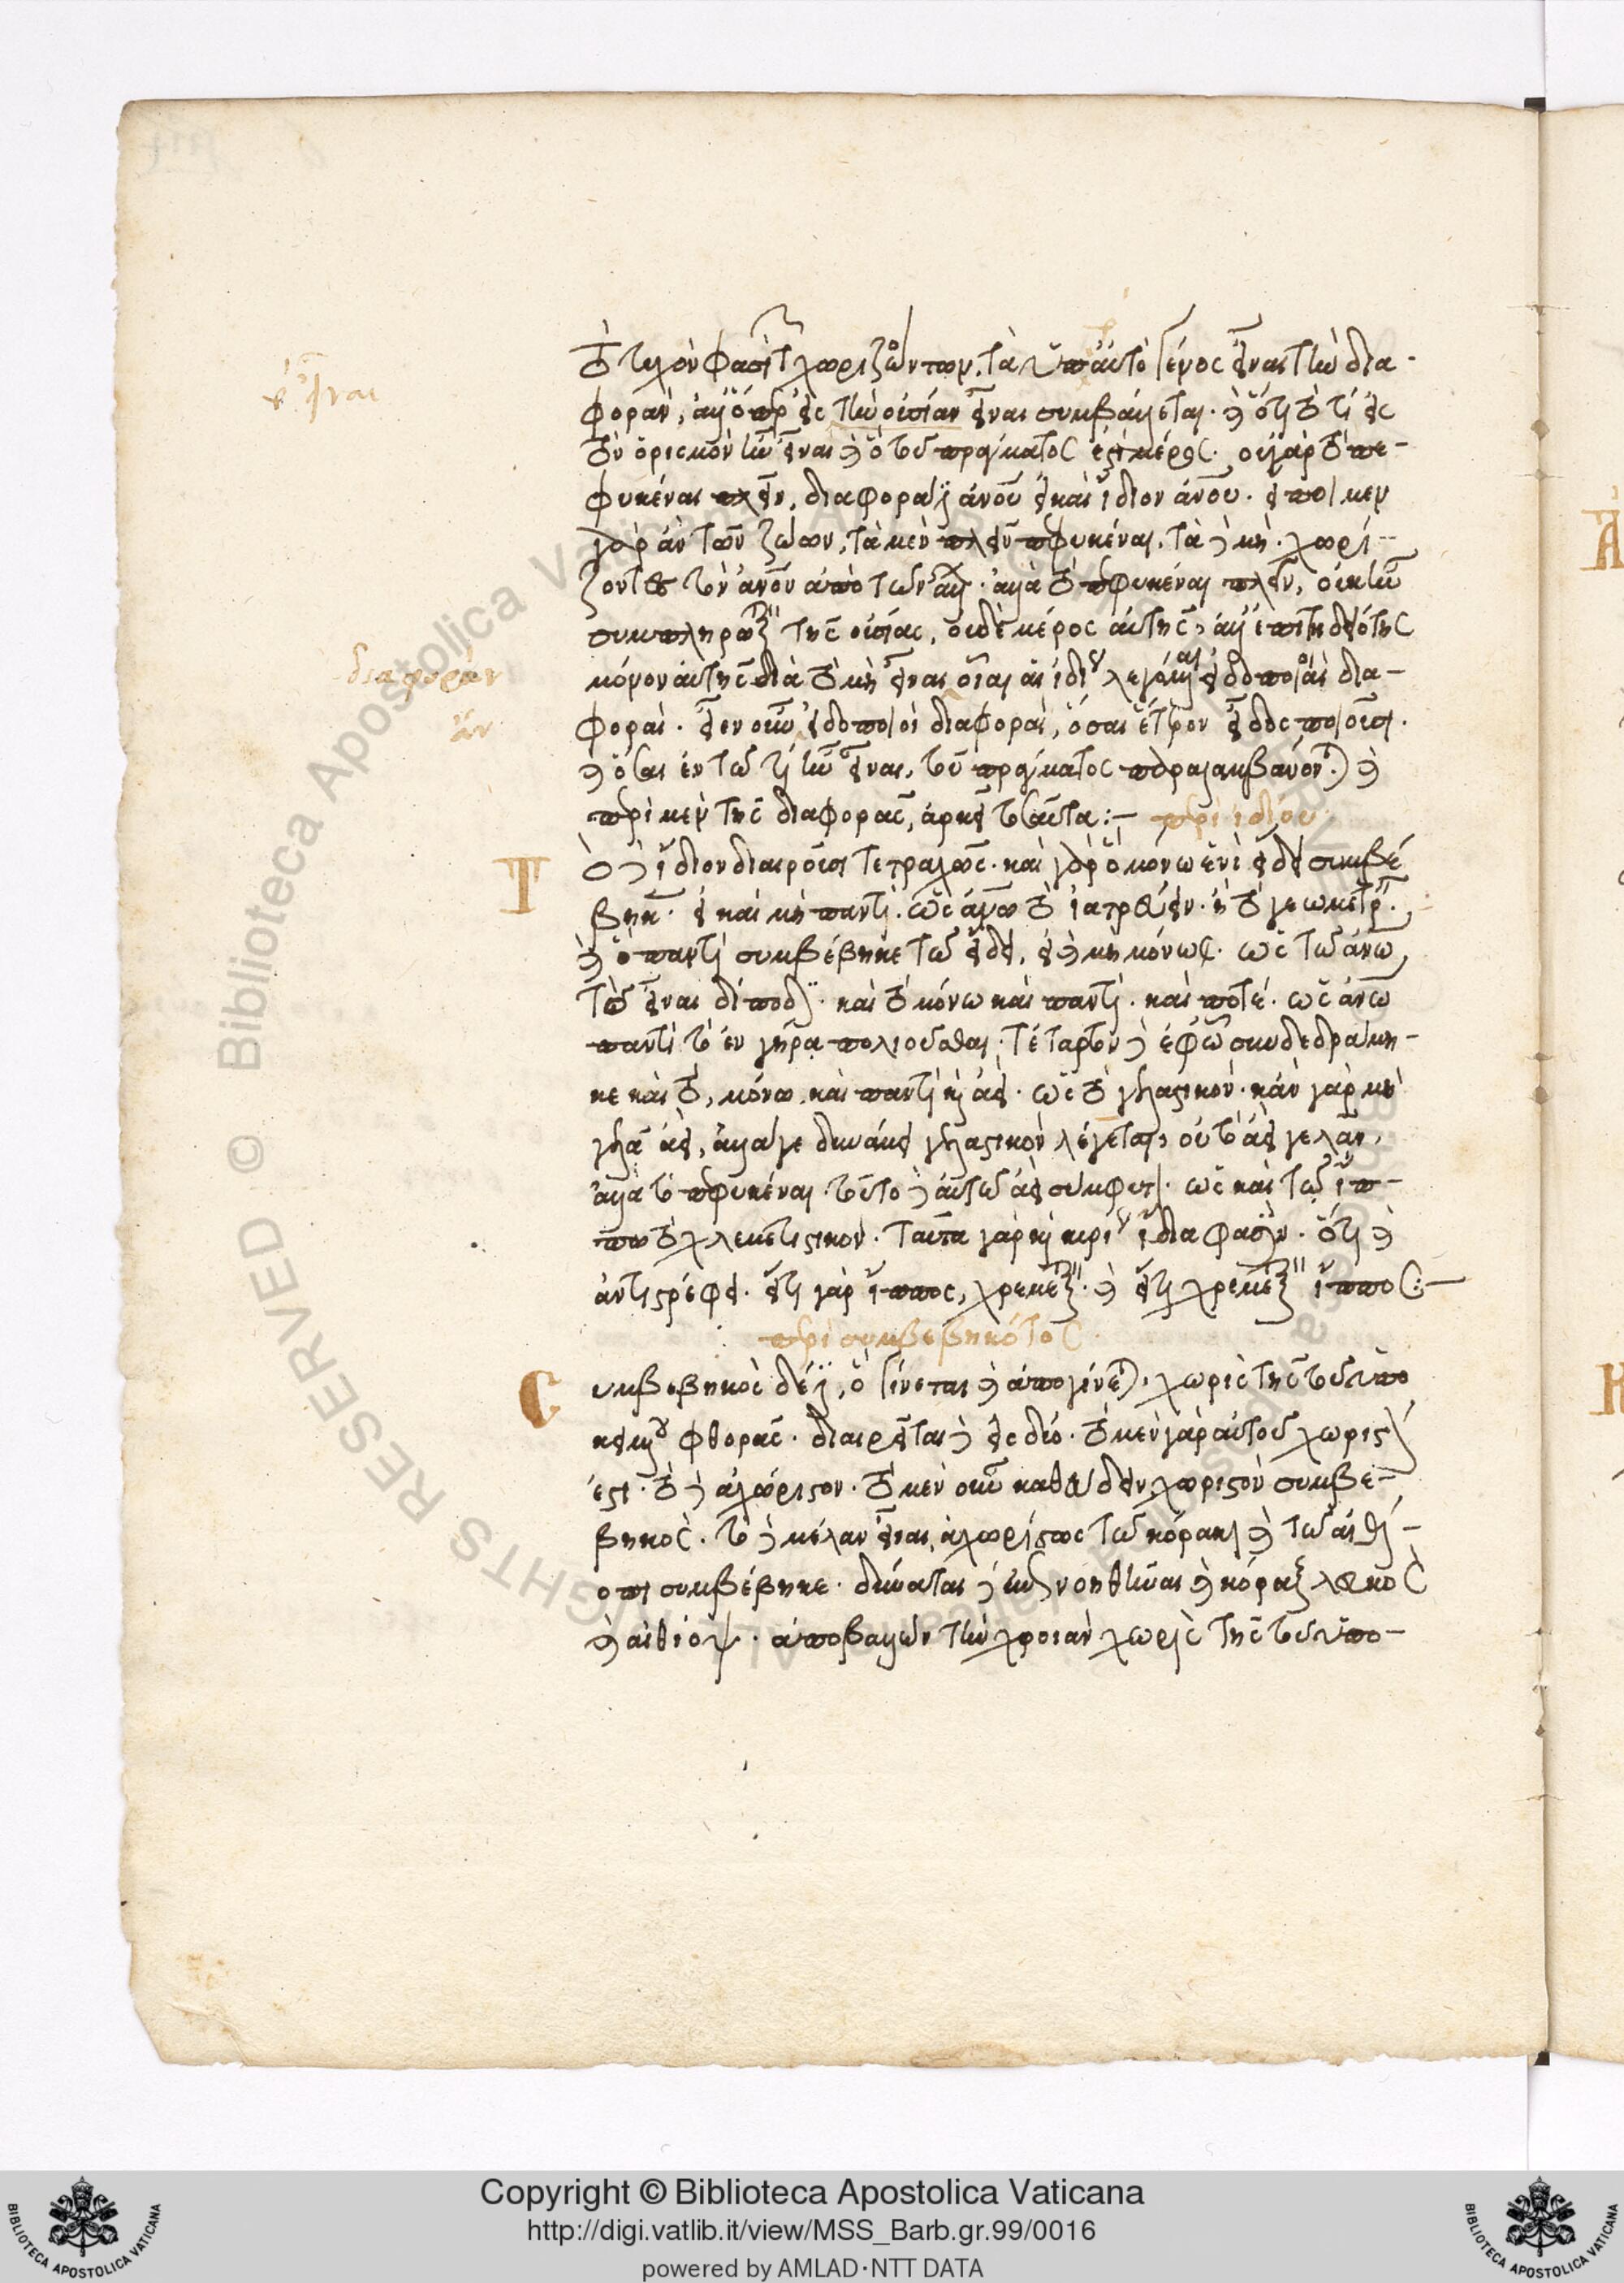 τὸ τυχὸν φασὶ τῶν χωριζόντων τὰ ὑπὸ αὐτὸ γένος εἶναι τὴν δια-
φορὰν, ἀλλ' ὅπερ εἰς τὴν οὐσίαν εἶναι συμβάλλεται. καὶ ὅτι τὸ τί εἰς
τὸν ὁρισμὸν ἦν εἶναι καὶ ὃ τοῦ πράγματός ἐστι μέρος. οὐ γὰρ τὸ πε-
φυκέναι πλεῖν, διαφορά ἀνου εἰ καὶ ἴδιον ἀνου. εἴποιμεν
γὰρ ἂν τῶν ζώων, τὰ μὲν πλεῖν πεφυκέναι, τὰ δὲ μή. χωρί-
ζοντες τὸν ἄνον ἀπὸ τῶν ἄλλων. ἀλλὰ τὸ πεφυκέναι πλεῖν, οὐκ ἦν
συμπληρωτικὸν τῆς οὐσίας, οὐδὲ μέρος αὐτῆς, ἀλλ' ἐπιτηδειότης
μόνον αὐτῆς διὰ τὸ μὴ εἶναι οἷαι αἱ ἰδίως λεγόμεναι εἰδοποιοὶ δια-
φοραί. εἶεν οὖν εἰδοποιοὶ διαφοραὶ, ὅσαι ἕτερον εἶδος ποιοῦσι.
καὶ ὅσαι ἐν τῷ τί ἦν εἶναι, τοῦ πράγματος παραλαμβάνονται. καὶ
περὶ μὲν τῆς διαφορᾶς, ἀρκεῖ τοσαῦτα:- περὶ ἰδίου
Τὸ δὲ ἴδιον διαιροῦσι τετραχῶς. καὶ γὰρ ὃ μόνω ἑνὶ εἴδει συμβέ
βηκεν. εἰ καὶ μὴ παντὶ. ὡς ἀνω τὸ ἰατρεύειν. ἢ τὸ γεωμετρεῖν.
καὶ ὃ παντὶ συμβέβηκε τῷ εἴδει, εἰ καὶ μὴ μόνως. ὡς τῷ ἀνω,
τὸ εἶναι δίποδι. καὶ τὸ μόνω καὶ παντὶ. καὶ ποτέ. ὡς ἀνω
παντὶ τὸ ἐν γήρα πολιοῦσθαι. τέταρτον δὲ ἐφ' ὧ συνδεδράμη-
κε καὶ τὸ, μόνω, καὶ παντὶ καὶ ἀεί. ὡς τὸ γελαστικόν. κἂν γὰρ μὴ
γελᾶ ἀεὶ, ἀλλά γε δυνάμει γελαστικὸν λέγεται, οὐ τὸ ἀεὶ γελᾶν,
ἀλλὰ τὸ πεφυκέναι. τοῦτο δὲ αὐτῶ ἀεὶ σύμφυτον. ὡς καὶ τῶ ἵπ-
πω τὸ χρεμετιστικόν. ταῦτα γὰρ καὶ κυρίως ἴδια φασὶν. ὅτι καὶ
ἀντιστρέφει. εἴ τι γὰρ ἵππος, χρεμετιστικόν. καὶ εἴ τι χρεμετιστικόν ἵππος:-
περὶ συμβεβηκότος
Συμβεβηκὸς δέ ἐστιν, ὃ γίνεται καὶ ἀπογίνεται. χωρὶς τῆς τοῦ ὑπο
κειμένου φθορᾶς. διαιρεῖται δὲ εἰς δύο. τὸ μὲν γὰρ αὐτοῦ χωριστόν
ἐστι. τὸ δὲ ἀχώριστον. τὸ μὲν οὖν καθεύδειν, χωριστὸν συμβε-
βηκός. τὸ δὲ μέλαν εἶναι, ἀχωρίστως τῶ κόρακι καὶ τῶ αἰθί-
οπι συμβέβηκε. δύναται δὲ ἐπινοηθῆναι καὶ κόραξ λευκὸς
καὶ αἰθίοψ. ἀποβαλὼν τὴν χροιὰν χωρὶς τῆς τοῦ ὑπο-
διαφορὰν
ἂν
Copyright © Biblioteca Apostolica Vaticana
http://digi.vatlib.it/view/MSS_Barb.gr.99/0016
powered by AMLAD·NTT DATA